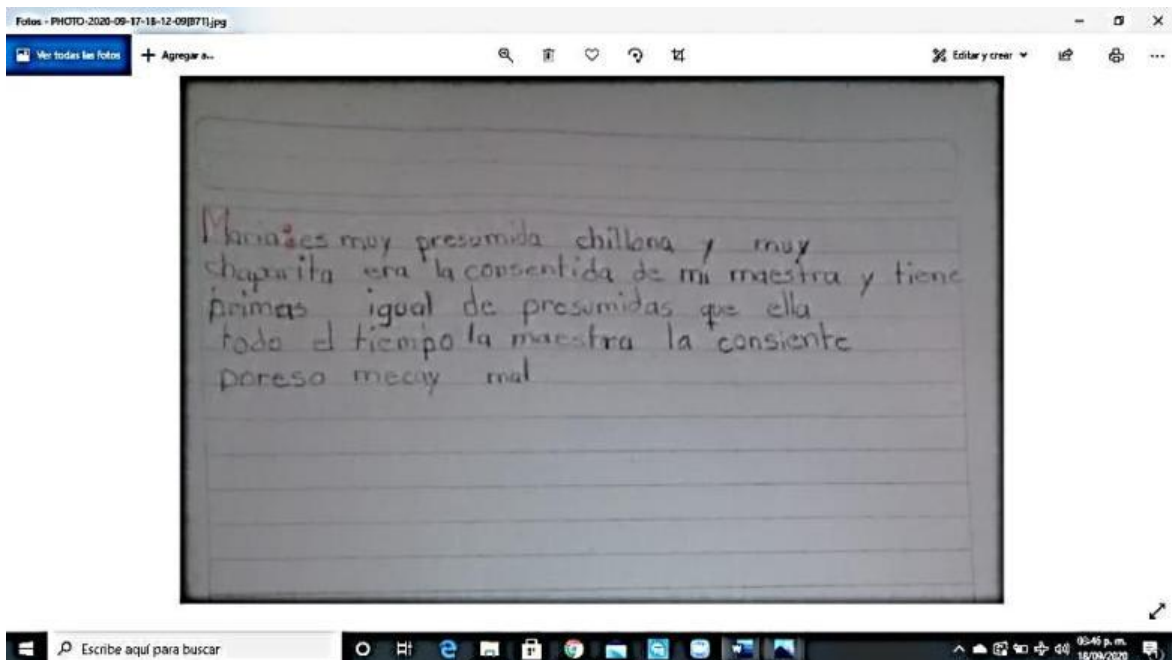 Fotos - PHOTO-2020-09-17-18-12-09[871].jpg
Ver todas las fotos
Agregar a...
Editar y crear
Maria es muy presumida chillona y muy
chaparrita era la consentida de mi maestra y tiene
primas igual de presumidas que ella
todo el tiempo la maestra la consiente
poreso mecay mal
Escribe aquí para buscar
03:46 p. m.
18/09/2020